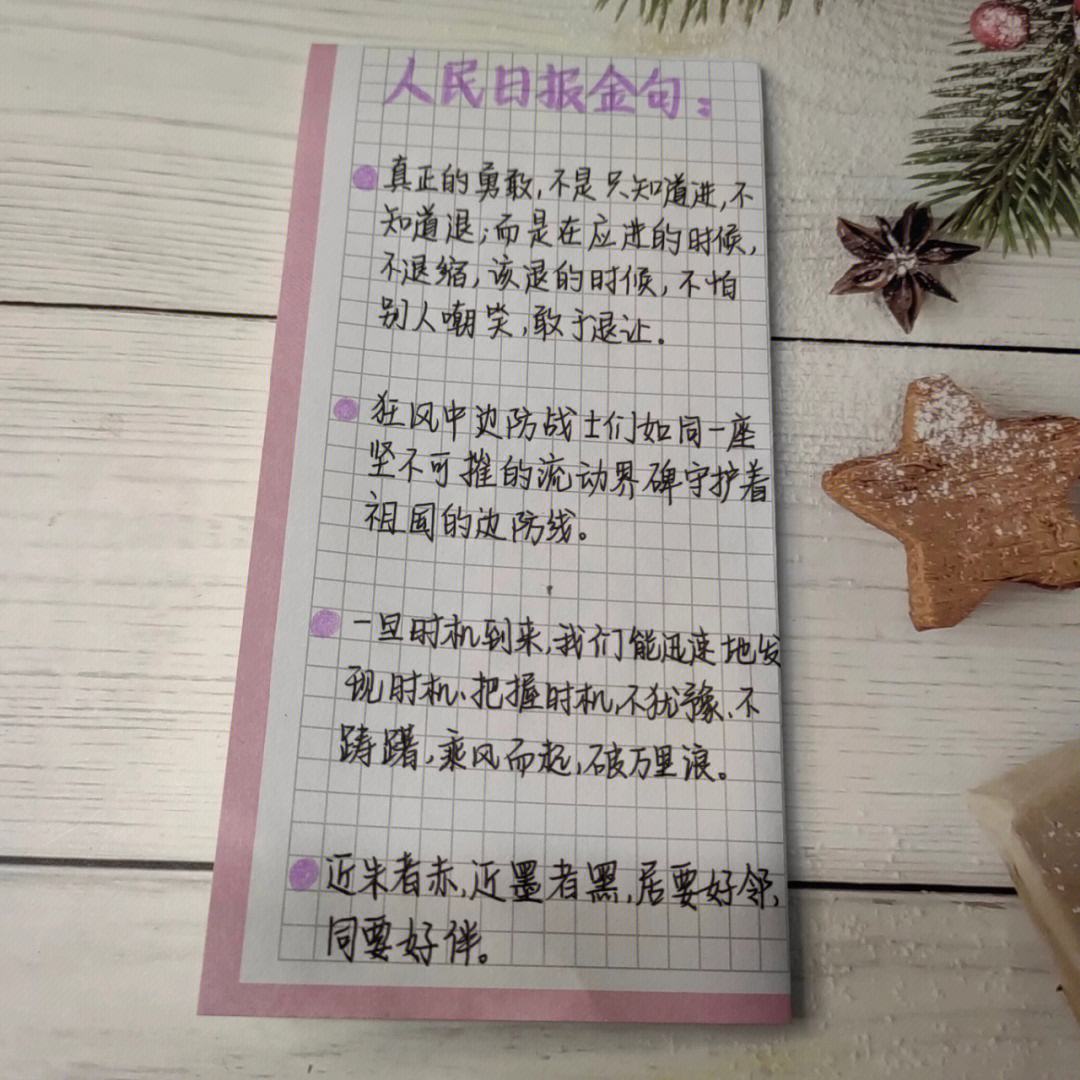 人民日报金句：
真正的勇敢，不是只知道进，不
知道退；而是在应进的时候，
不退缩，该退的时候，不怕
别人嘲笑，敢于退让。
狂风中边防战士们如同一座
坚不可摧的流动界碑守护着
祖国的边防线。
一旦时机到来，我们能迅速地发
现时机、把握时机，不犹豫、不
踌躇，乘风而起，破万里浪。
近朱者赤，近墨者黑，居要好邻，
同要好伴。